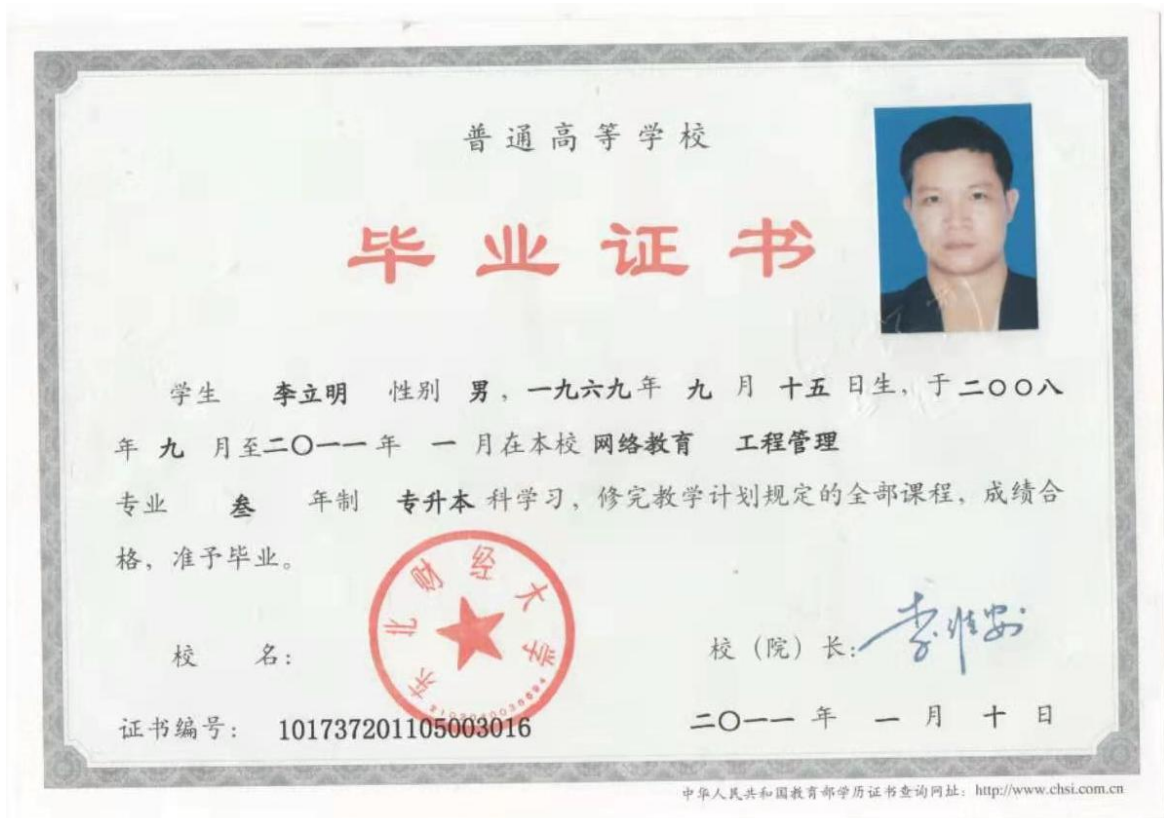 普通高等学校
毕业证书
学生 李立明 性别 男，一九六九年 九 月 十五 日生，于二〇〇八
年 九 月至二〇一一年 一 月在本校 网络教育 工程管理
专业 叁 年制 专升本 科学习，修完教学计划规定的全部课程，成绩合
格，准予毕业。
东北财经大学
校 名：
校（院）长：李维安
证书编号：101737201105003016
二〇一一 年 一 月 十 日
中华人民共和国教育部学历证书查询网址：http://www.chsi.com.cn